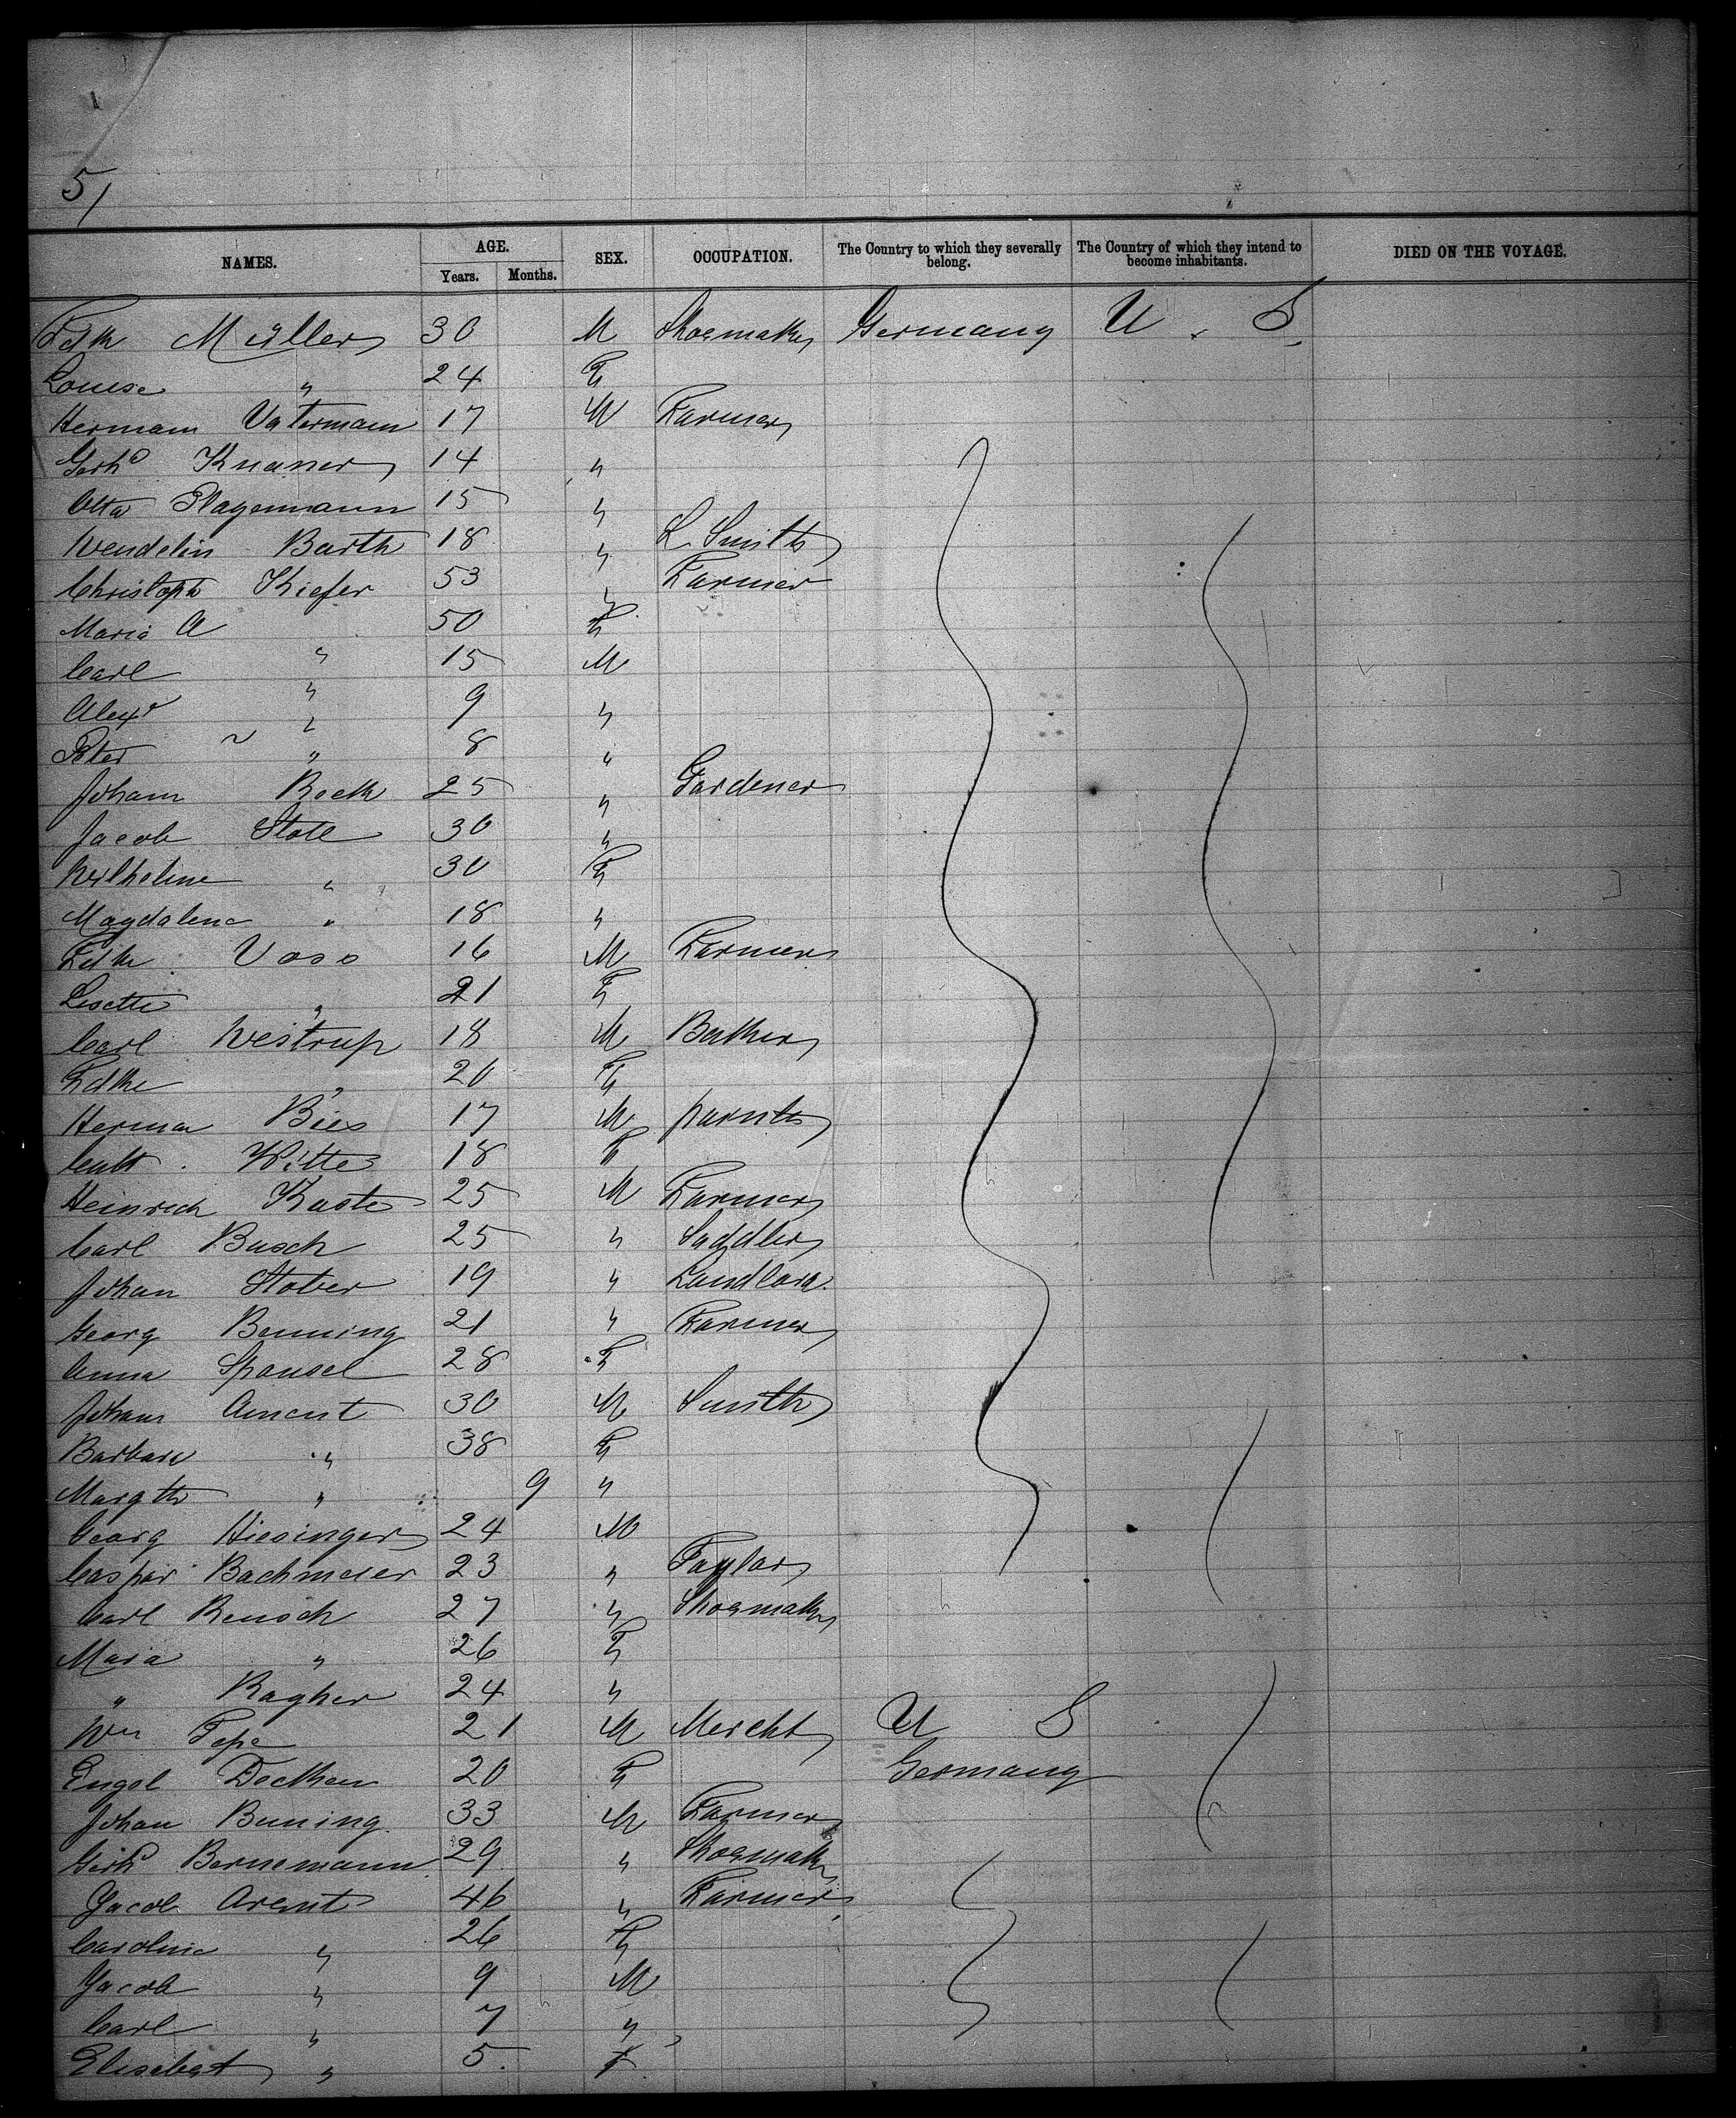 5/
NAMES. AGE. SEX. OCCUPATION. The Country to which they severally belong. The Country of which they intend to become inhabitants. DIED ON THE VOYAGE.
Years. Months.
Müller 30 M Shoemaker Germany U. S.
Louise " 24 F
Hermann Vatermann 17 M Farmer
Gerhd 14 "
Otto Plagemann 15 "
Wendelin Barth 18 " L. Smith
Christoph Kiefer 53 " Farmer
Maria A " 50 F
Carl " 15 M
Alexr " 9 "
Peter " 8 "
Johann Beck 25 " Gardener
Jacob Stoll 30 "
Wilheline " 30 F
Magdalena " 18 "
Voss 16 M Farmer
Lisette " 21 F
Carl Westrup 18 M Baker
" 20 F
Herman Bies 17 M
Witte 18 F
Heinrich Kaste 25 M Farmer
Carl Busch 25 " Saddler
Johan Stover 19 " Landlord
Georg Benning 21 " Farmer
Anna Spansel 28 F
Johann Ament 30 M Smith
Barbara " 38 F
Margth " 9 "
Georg Hiesinger 24 M
Caspar Bachmeier 23 " Taylor
Carl Reusch 27 " Shoemaker
Maria " 26 F
" Ragher 24 "
Wm Tepe 21 M Mercht U S
Engel Deckhan 20 F Germany
Johan Buning 33 M Farmer
Gerhd Bernemann 29 " Shoemaker
Jacob Arent 46 " Farmer
Caroline " 26 F
Jacob " 9 M
Carl " 7 "
Elisabeth " 5. F